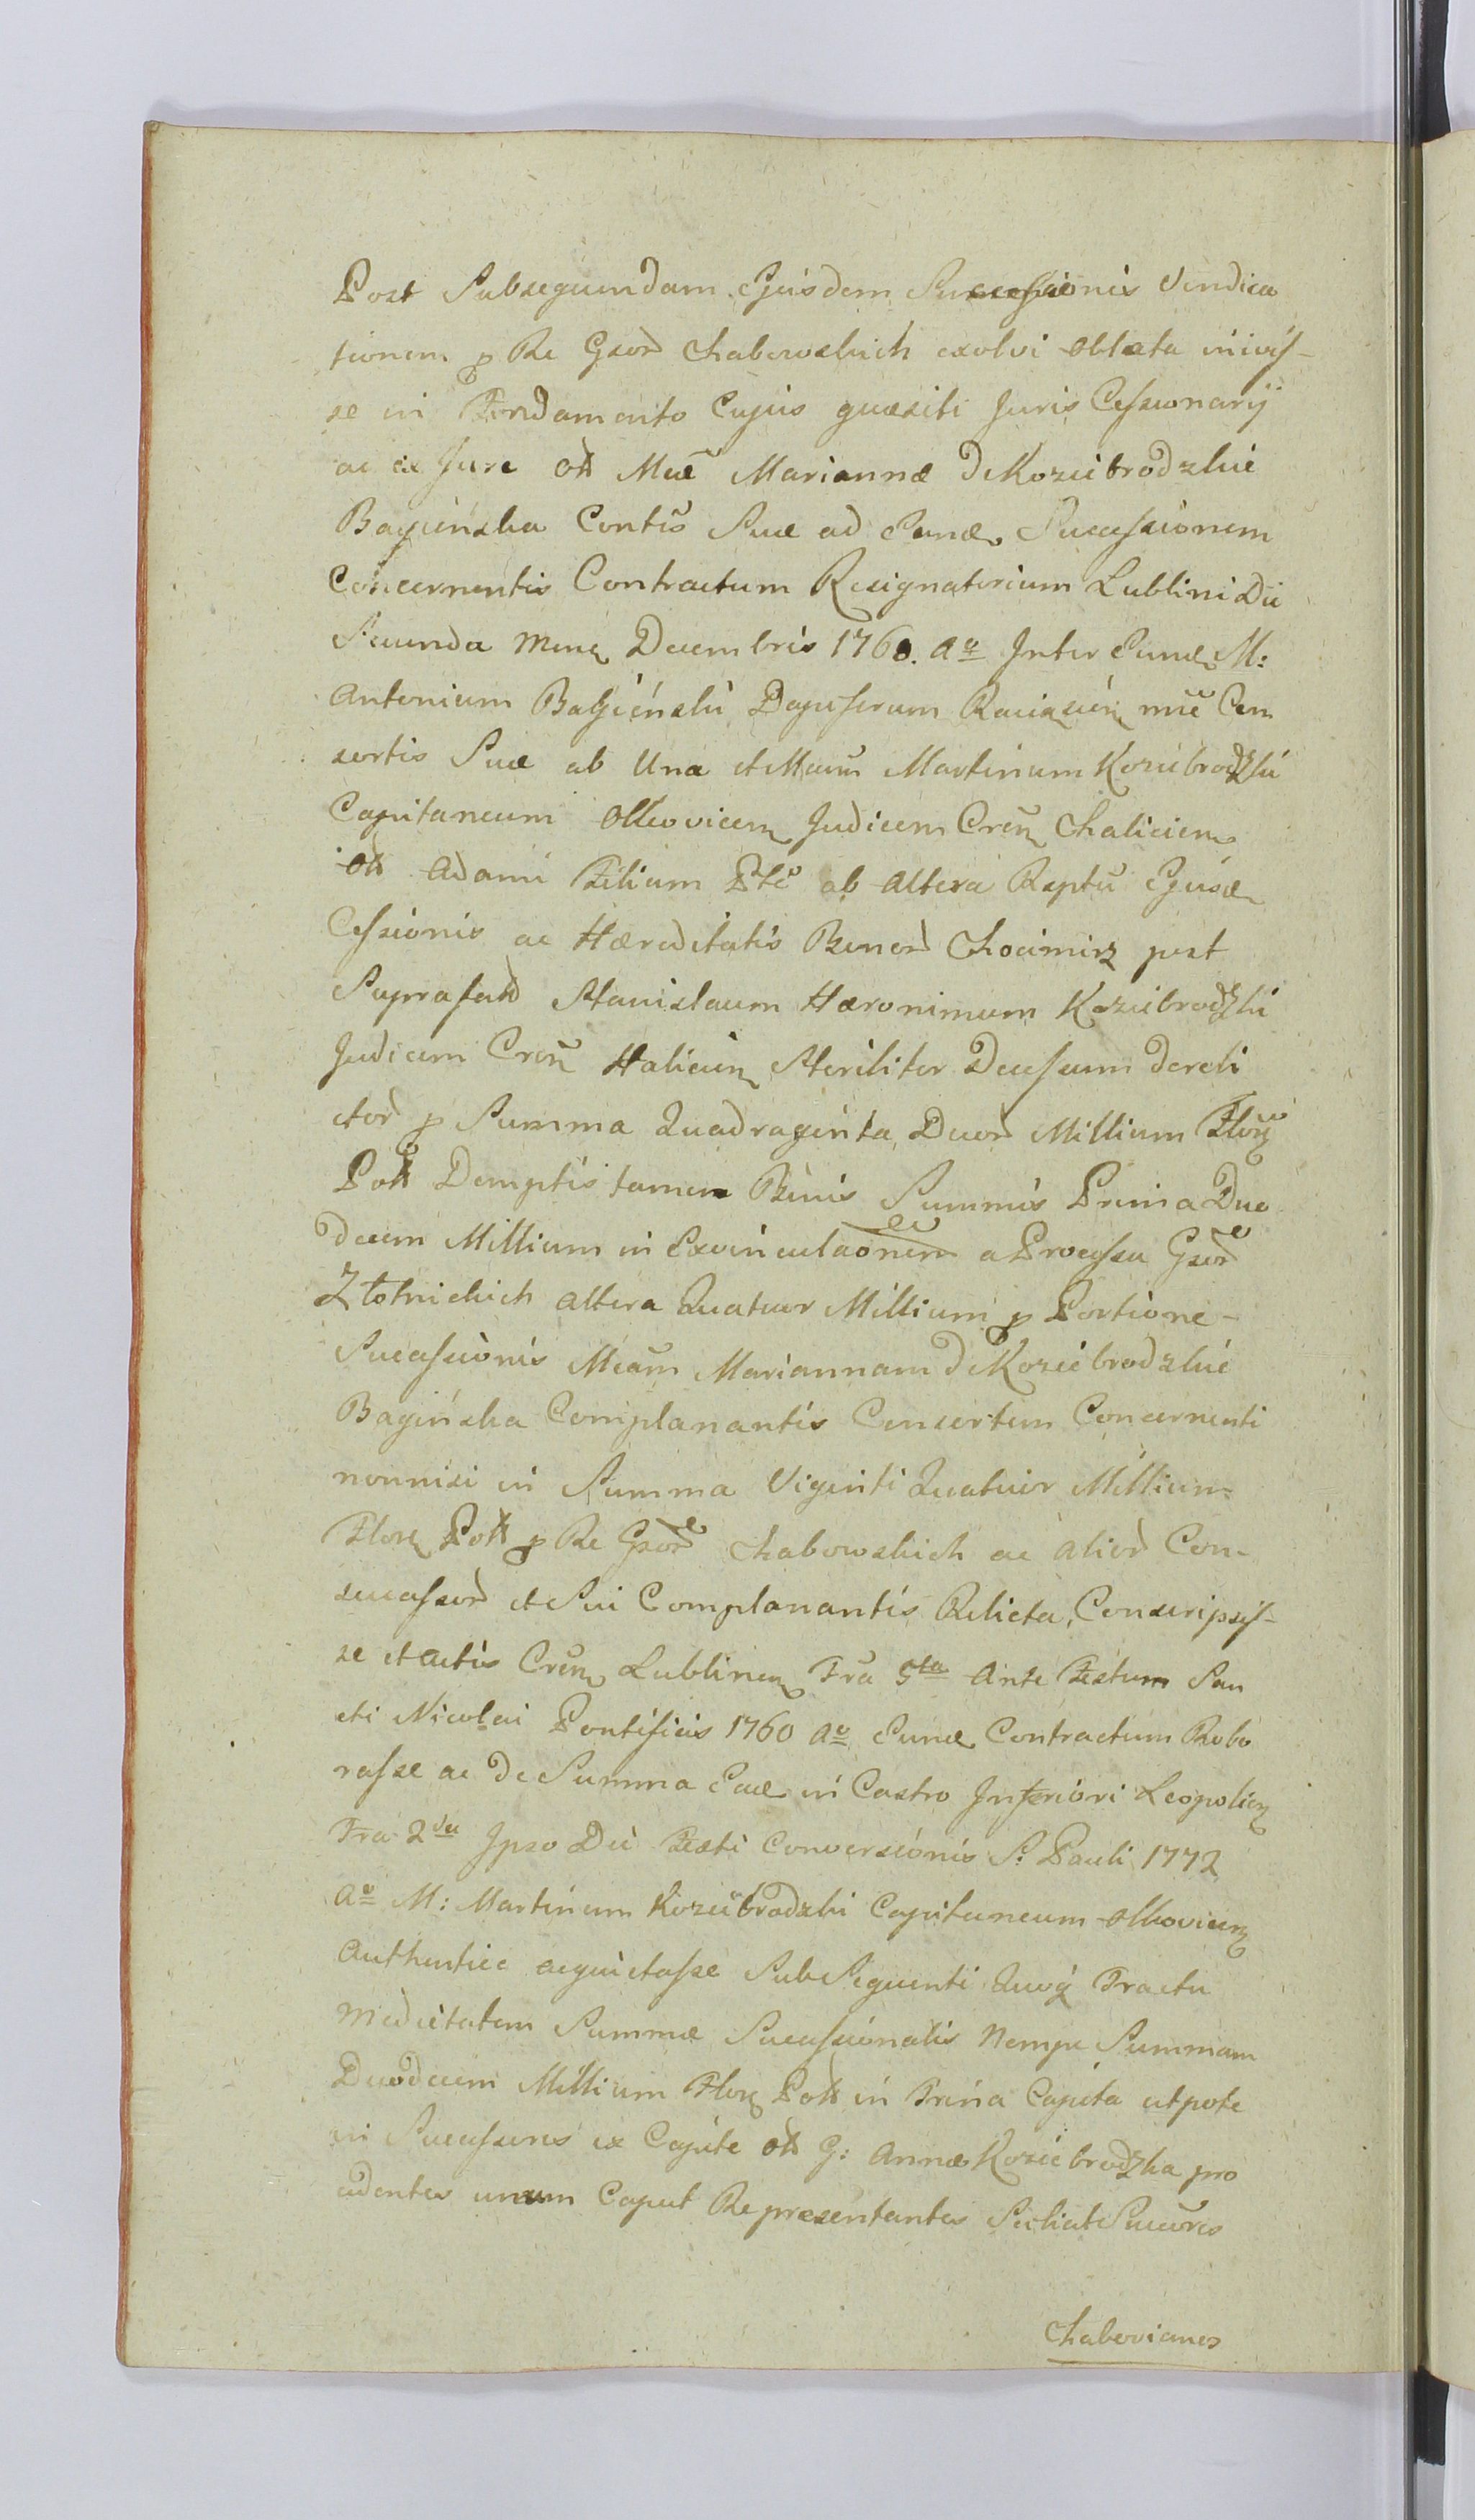 Post Subsequendam Ejusdem Successionis Vindica
tionem p Re Gsor Chabowskich exolvi oblata inivis-
se in Fondamento Cujus quæsiti Juris Cessionarij
ac ex Jure olt Mcæ Mariannæ de Koziebrodzkie
Bagienska Contis Suæ ad Eand Successionem
Concernentis Contractum Resignatorium Lublini Die
Secunda Mens Decembris 1760. Ao Inter Eund M:
Antonium Bagieński Dapiferum Raciązień mcæ Con
sortis Suæ ab Una et Mcum Martinum Koziebrodzki
Capitaneum Olkovicen Judicem Cren Chalicien
olt Adami Filium Pte ab Altera Rsptu Ejusd
Cessionis ac Hæreditatis Bonor Chocimirz post
Suprafatt Stanislaum Hæronimum Koziebrodzki
Judicem Cren Halicien Steriliter Decessum dereli
ctor p Summa Quadraginta Duor Millium Flor
Polt Demptis tamen Binis Summis Prima Duo
decim Millium in Exvinculaonem a Processu Gsor
Złotnickich altera Quatuor Millium p Portione -
Successionis Mcam Mariannam de Koziebrodzkie
Bagińska Complanantis Consortem Concernenti
nonnisi in Summa Viginti Quatuor Millium
Flor Polt p Re Gsor Chabowskich ac alior Con-
successor et Sui Complanantis Relicta, Conscripsis-
se et Actis Cren Lublinen Fra 5ta Ante Festum San
cti Nicolai Pontificis 1760 Ao Eund Contractum Robo
rasse ac de Summa Ead in Castro Inferiori Leopolien
Fra 2da Ipso Die Festi Conversionis S: Pauli 1772
Ao M: Martinum Koziebrodzki Capitaneum Olkovicen
Authentice acquietasse SubSequenti Quoq Tractu
Medietatem Summæ Successionalis Nempe Summam
Duodecim Millium Flor Polt in Trina Capita utpote
in Successores ex Capite olt G: Annæ Koziebrodzka pro
cedentes unum Caput Repræsentantes Scilicet Succores
Chabovianos